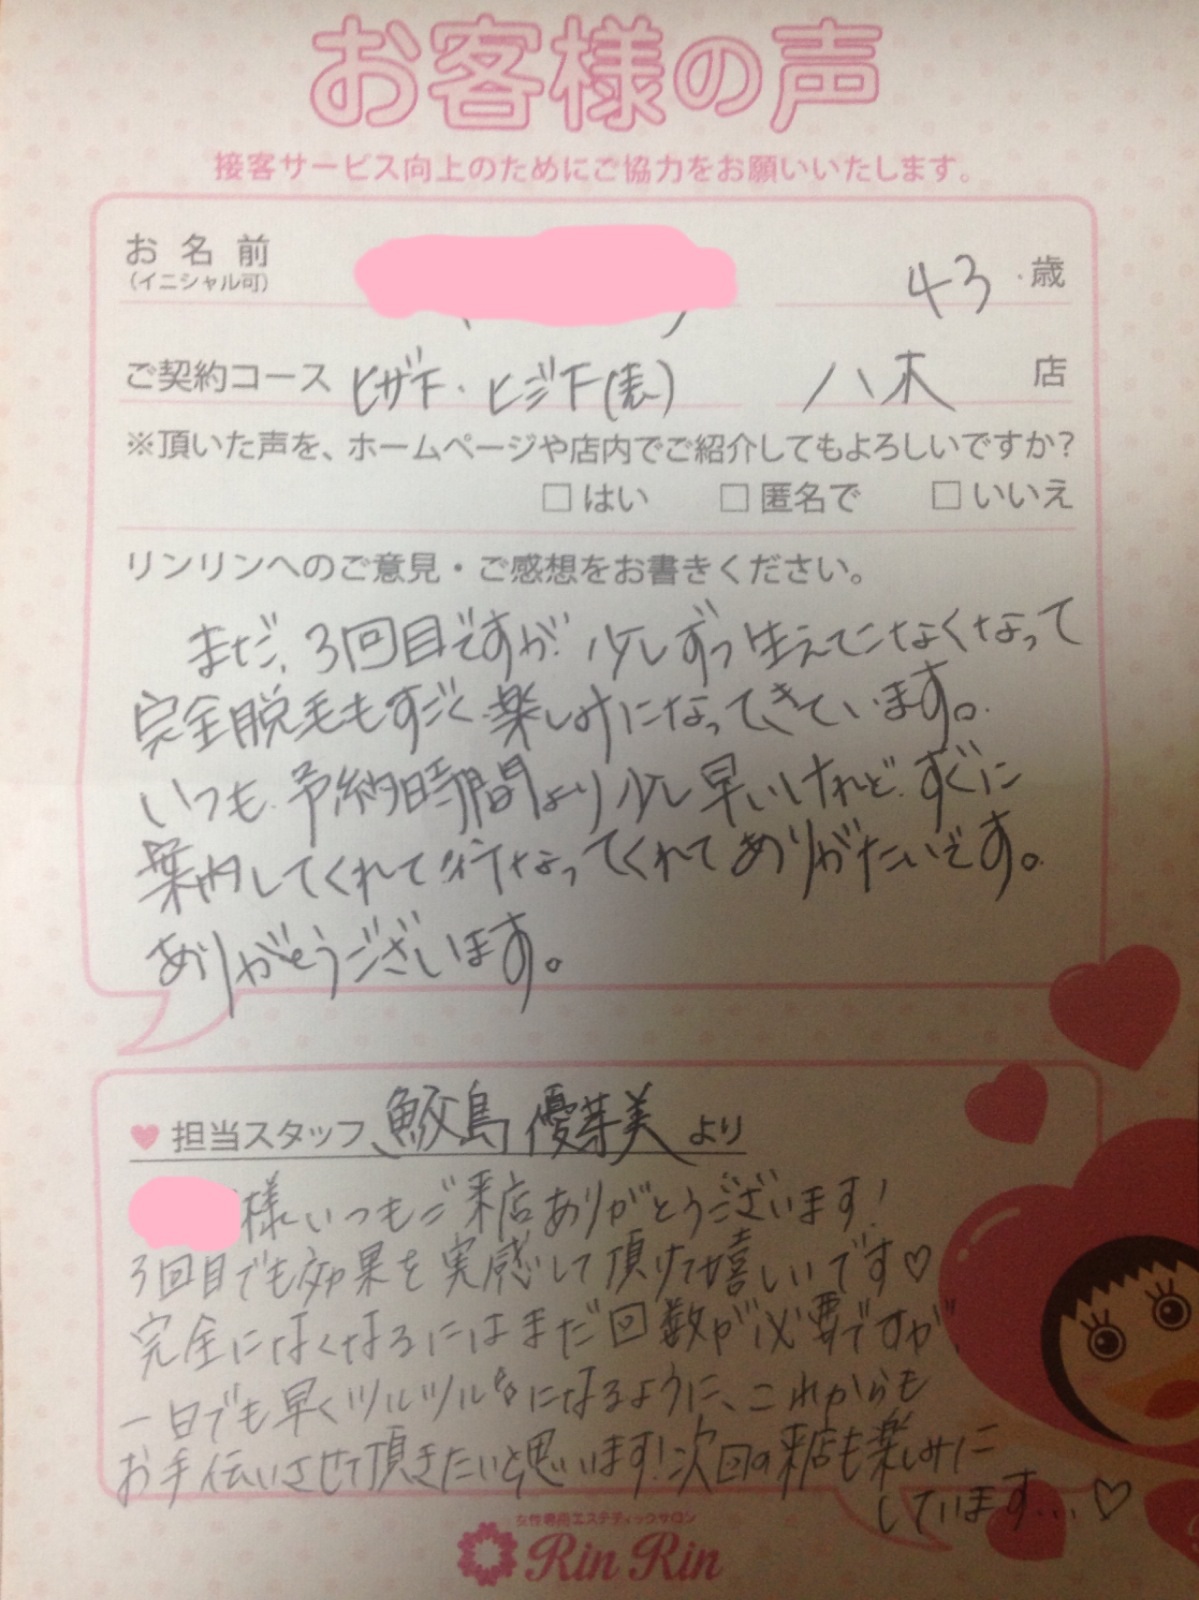 お客様の声
接客サービス向上のためにご協力をお願いいたします。
お名前
(イニシャル可)
43 歳
ご契約コース ヒザ下・ヒジ下(表)
八木 店
※頂いた声を、ホームページや店内でご紹介してもよろしいですか?
□ はい □ 匿名で □ いいえ
リンリンへのご意見・ご感想をお書きください。
まだ、3回目ですが、少しずつ生えてこなくなって
完全脱毛もすごく楽しみになってきています。
いつも、予約時間より少し早いけれど、すぐに
案内してくれて行なってくれてありがたいです。
ありがとうございます。
♥ 担当スタッフ、鮫島 優芽美 より
様いつもご来店ありがとうございます!
3回目でも効果を実感して頂けて嬉しいです♡
完全になくなるにはまだ回数が必要ですが、
一日でも早くツルツルになるように、これからも
お手伝いさせて頂きたいと思います!次回の来店も楽しみに
しています...♡
女性専用エステティックサロン
Rin Rin